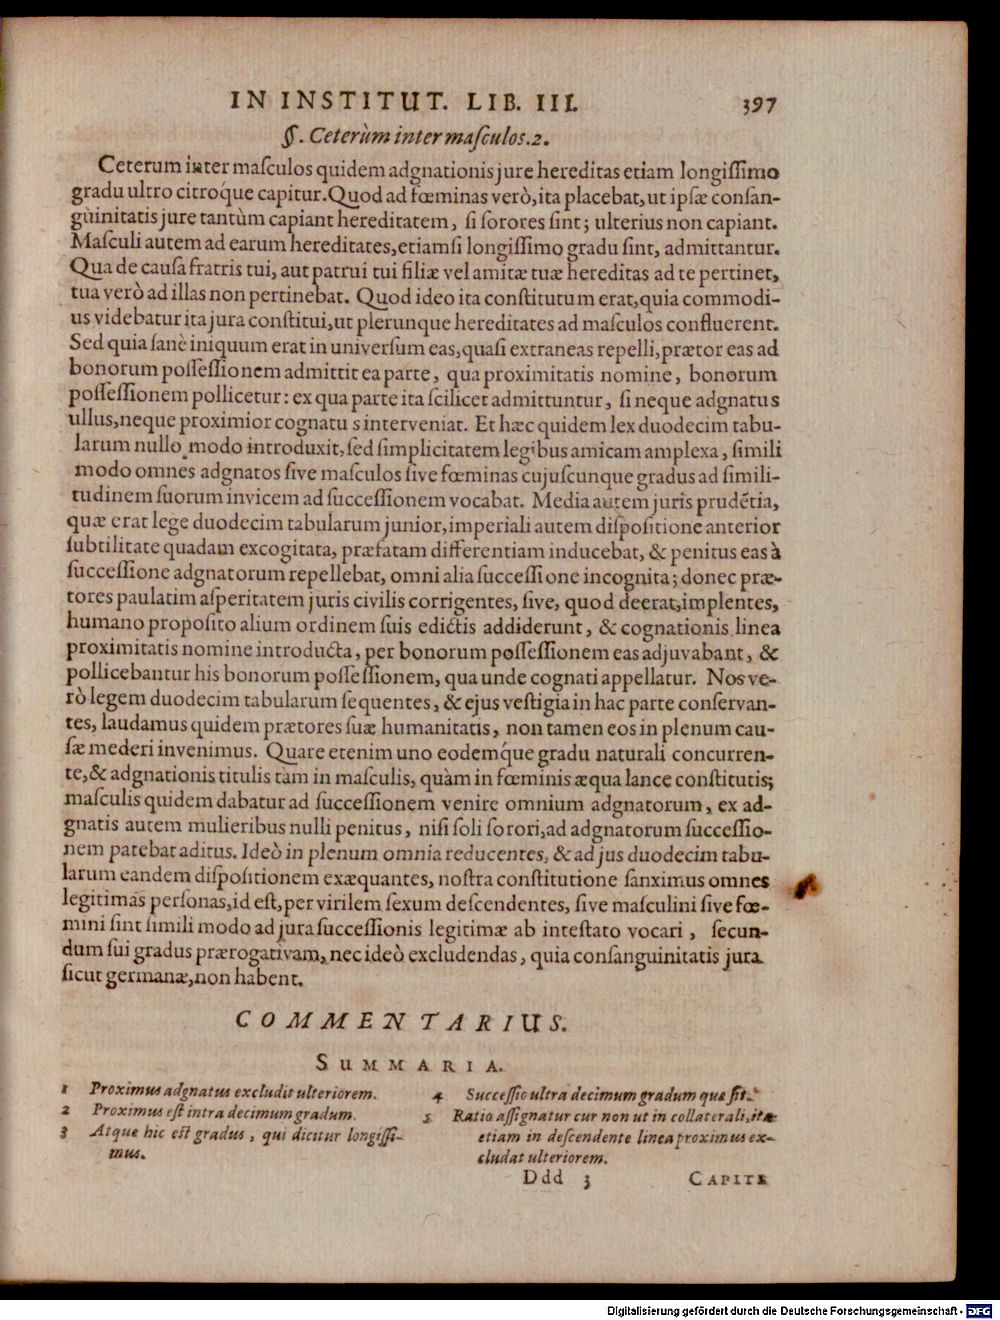 IN INSTITUT. LIB. III. 397
§. Ceterùm inter maſculos. 2.
Ceterum inter maſculos quidem adgnationis jure hereditas etiam longiſſimo
gradu ultro citroque capitur. Quod ad fœminas verò, ita placebat, ut ipſæ conſan-
guinitatis jure tantùm capiant hereditatem, ſi ſorores ſint; ulterius non capiant.
Maſculi autem ad earum hereditates, etiamſi longiſſimo gradu ſint, admittantur.
Qua de cauſa fratris tui, aut patrui tui filiæ vel amitæ tuæ hereditas ad te pertinet,
tua verò ad illas non pertinebat. Quod ideo ita conſtitutum erat, quia commodi-
us videbatur ita jura conſtitui, ut plerunque hereditates ad maſculos confluerent.
Sed quia ſanè iniquum erat in univerſum eas, quaſi extraneas repelli, prætor eas ad
bonorum poſſeſſionem admittit ea parte, qua proximitatis nomine, bonorum
poſſeſſionem pollicetur: ex qua parte ita ſcilicet admittuntur, ſi neque adgnatus
ullus, neque proximior cognatu s interveniat. Et hæc quidem lex duodecim tabu-
larum nullo modo introduxit, ſed ſimplicitatem legibus amicam amplexa, ſimili
modo omnes adgnatos ſive maſculos ſive fœminas cujuſcunque gradus ad ſimili-
tudinem ſuorum invicem ad ſucceſſionem vocabat. Media autem juris prudētia,
quæ erat lege duodecim tabularum junior, imperiali autem diſpoſitione anterior
ſubtilitate quadam excogitata, præfatam differentiam inducebat, & penitus eas à
ſucceſſione adgnatorum repellebat, omni alia ſucceſſione incognita; donec præ-
tores paulatim aſperitatem juris civilis corrigentes, ſive, quod deerat, implentes,
humano propoſito alium ordinem ſuis edictis addiderunt, & cognationis linea
proximitatis nomine introducta, per bonorum poſſeſſionem eas adjuvabant, &
pollicebantur his bonorum poſſeſſionem, qua unde cognati appellatur. Nos ve-
rò legem duodecim tabularum ſequentes, & ejus veſtigia in hac parte conſervan-
tes, laudamus quidem prætores ſuæ humanitatis, non tamen eos in plenum cau-
ſæ mederi invenimus. Quare etenim uno eodemque gradu naturali concurren-
te, & adgnationis titulis tam in maſculis, quàm in fœminis æqua lance conſtitutis;
maſculis quidem dabatur ad ſucceſſionem venire omnium adgnatorum, ex ad-
gnatis autem mulieribus nulli penitus, niſi ſoli ſorori, ad adgnatorum ſucceſſio-
nem patebat aditus. Ideò in plenum omnia reducentes, & ad jus duodecim tabu-
larum eandem diſpoſitionem exæquantes, noſtra conſtitutione ſanximus omnes
legitimas perſonas, id eſt, per virilem ſexum deſcendentes, ſive maſculini ſive fœ-
mini ſint ſimili modo ad jura ſucceſſionis legitimæ ab inteſtato vocari, ſecun-
dum ſui gradus prærogativam, nec ideò excludendas, quia conſanguinitatis jura
ſicut germanæ, non habent.
COMMENTARIUS.
SUMMARIA.
1 Proximus adgnatus excludit ulteriorem.
2 Proximus eſt intra decimum gradum.
3 Atque hic eſt gradus, qui dicitur longiſſi-
mus.
4 Succeſſio ultra decimum gradum quæ ſit.
5 Ratio aſſignatur cur non ut in collaterali, ita
etiam in deſcendente linea proximus ex-
cludat ulteriorem.
Ddd 3 CAPITE
Digitalisierung gefördert durch die Deutsche Forschungsgemeinschaft - DFG